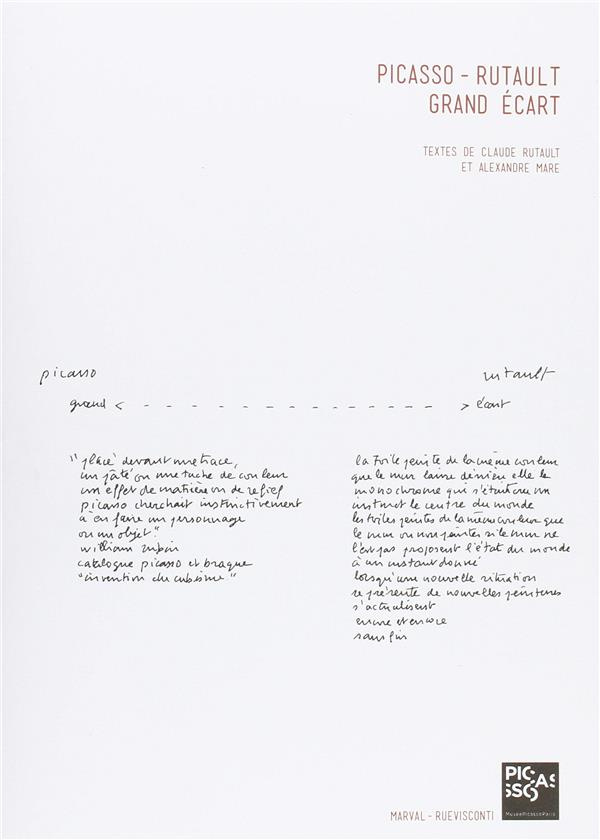 PICASSO - RUTAULT
GRAND ÉCART
TEXTES DE CLAUDE RUTAULT
ET ALEXANDRE MARE
picasso
rutault
grand < - - - - - - - - - - - - - - > écart
"placé devant une trace,
un pâté ou une tache de couleur
un effet de matière ou de relief
picasso cherchait instinctivement
à en faire un personnage
ou un objet."
william rubin
catalogue picasso et braque
"invention du cubisme"
la toile peinte de la même couleur
que le mur laisse derrière elle le
monochrome qui s'était cru un
instant le centre du monde
les toiles peintes de la même couleur que
le mur ou non peintes si le mur ne
l'est pas proposent l'état du monde
à un instant donné
lorsqu'une nouvelle situation
se présente de nouvelles peintures
s'actualisent
encore et encore
sans fin
PICAS
SSO
MuséePicassoParis
MARVAL - RUEVISCONTI